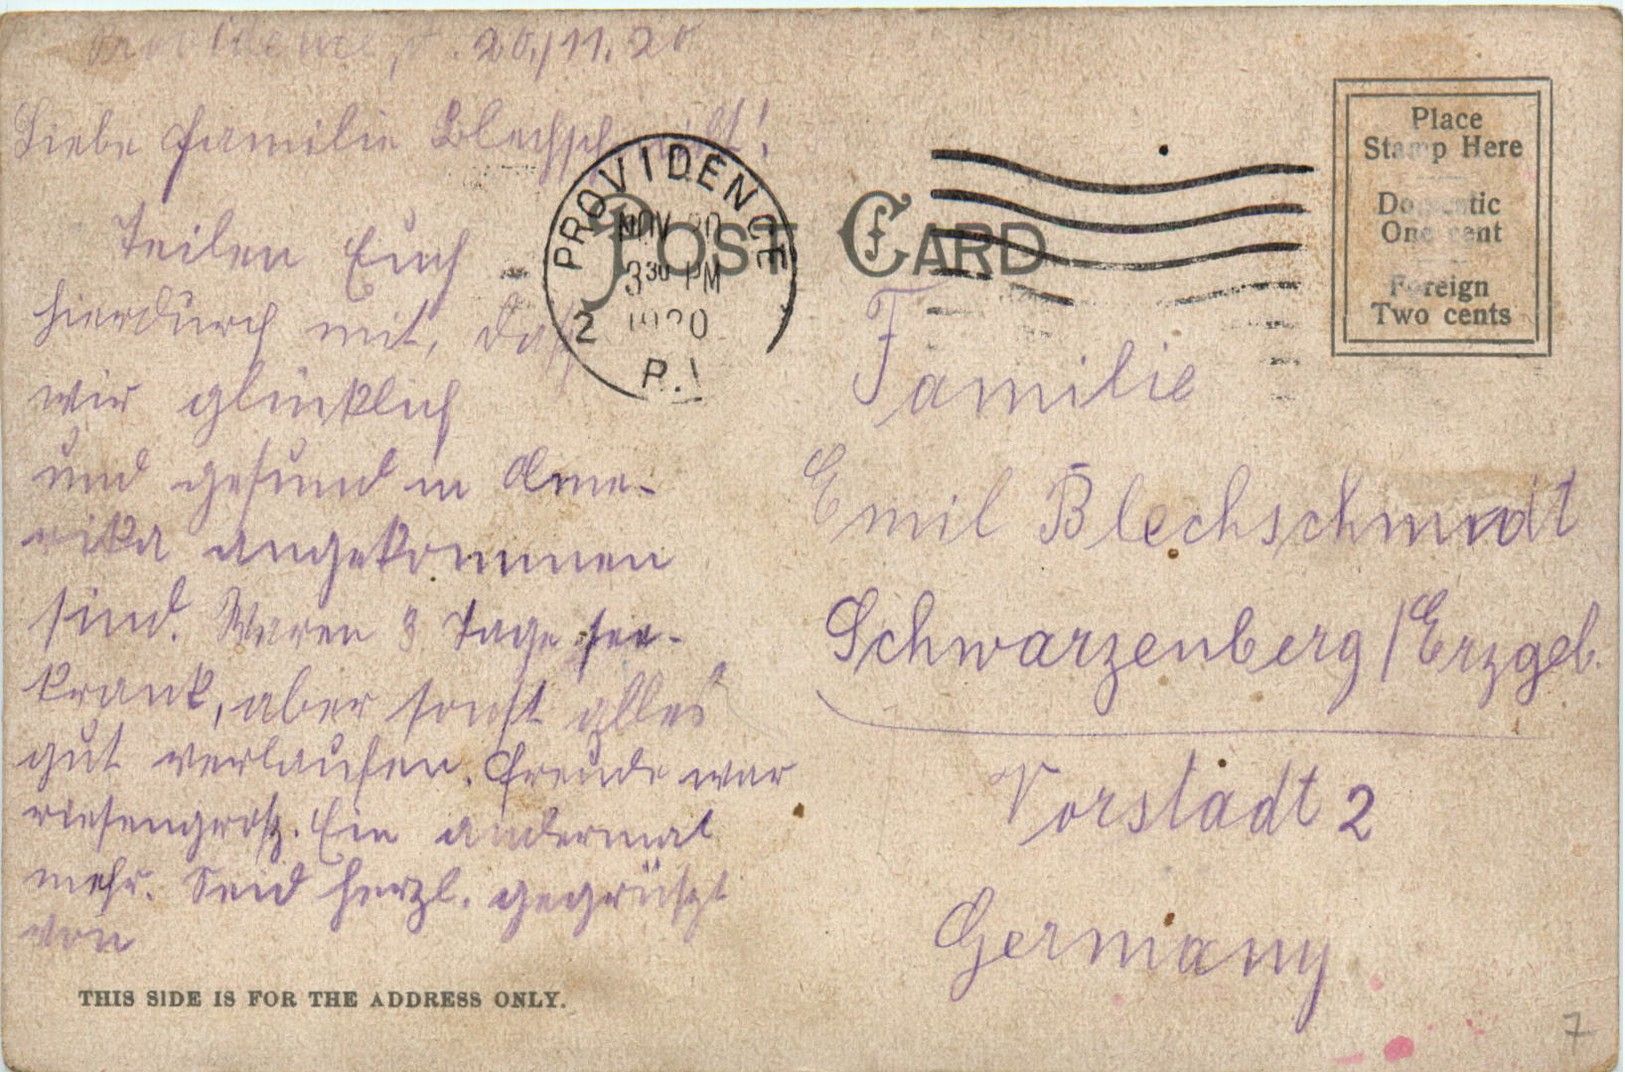 Providence, d. 20./11.20
Liebe Familie Blechschmidt!
Teilen Euch
hierdurch mit, daß
wir glücklich
und gesund in Ame-
rika angekommen
sind. Waren 8 Tage see-
krank, aber sonst alles
gut verlaufen. Freude war
riesengroß. Ein andermal
mehr. Seid herzl. gegrüßt
von
THIS SIDE IS FOR THE ADDRESS ONLY.
PROVIDENCE
NOV 20
3 30 PM
1920
2
R.I.
POST CARD
Place
Stamp Here
Domestic
One cent
Foreign
Two cents
Familie
Emil Blechschmidt
Schwarzenberg/Erzgeb.
Vorstadt 2
Germany
7